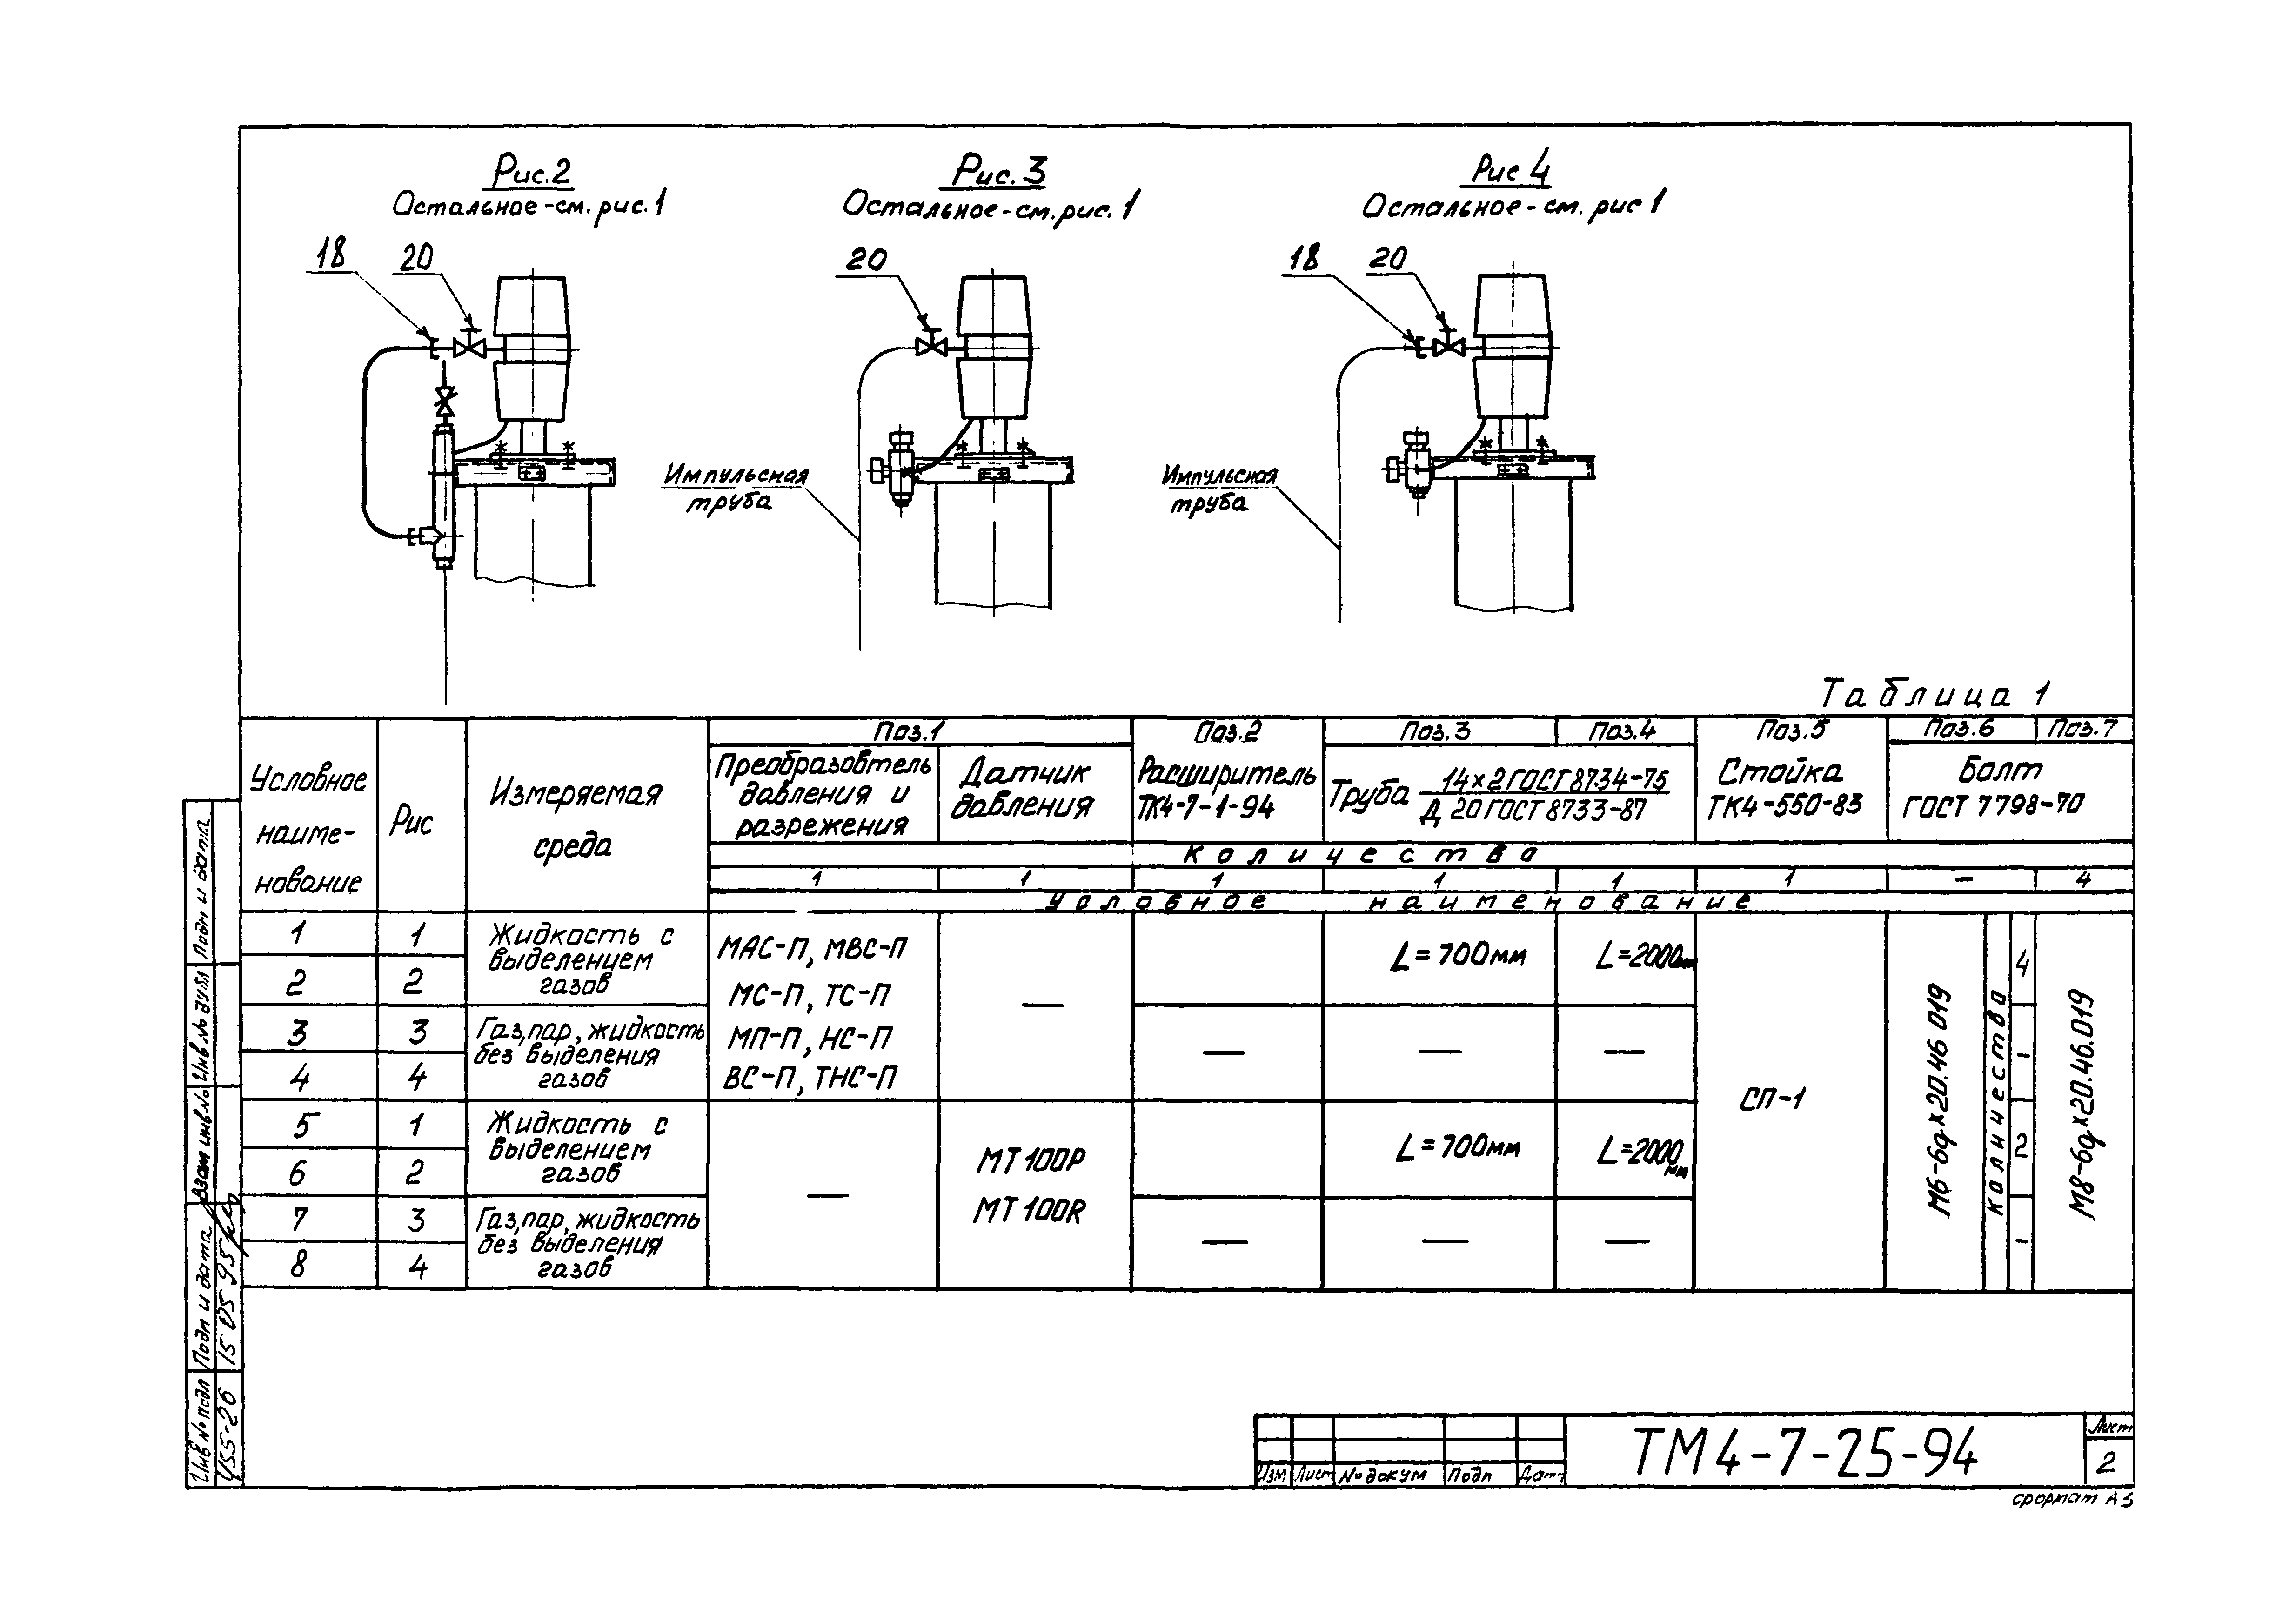 Рис.2
Остальное-см.рис.1
18 20
Рис.3
Остальное-см.рис.1
20
Импульсная
труба
Рис 4
Остальное-см.рис 1
18 20
Импульсная
труба
Таблица 1
Условное
наиме-
нование
Рис
Измеряемая
среда
Поз.1
Преобразовтель
давления и
разрежения
Датчик
давления
Поз.2
Расширитель
ТК4-7-1-94
Поз.3 Поз.4
Труба 14×2 ГОСТ 8734-75
Д 20 ГОСТ 8733-87
Поз.5
Стойка
ТК4-550-83
Поз.6 Поз.7
Болт
ГОСТ 7798-70
Количество
1 1 1 1 1 1 — 4
Условное наименование
1 1
2 2
Жидкость с
выделением
газов
3 3
4 4
Газ,пар,жидкость
без выделения
газов
5 1
6 2
Жидкость с
выделением
газов
7 3
8 4
Газ,пар,жидкость
без выделения
газов
МАС-П, МВС-П
МС-П, ТС-П
МП-П, НС-П
ВС-П, ТНС-П
—
—
МТ 100Р
МТ 100R
— — —
— — —
L=700мм L=2000мм
L=700мм L=2000
мм
СП-1
М6-6g×20.46 019
количество
4
-
2
-
М8-6g×20.46.019
Подп и дата
Инв № дубл
Взам инв №
Подп и дата
15 05 95
Инв № подл
455-26
Изм Лист № докум Подп Дат
ТМ4-7-25-94
Лист
2
формат А3